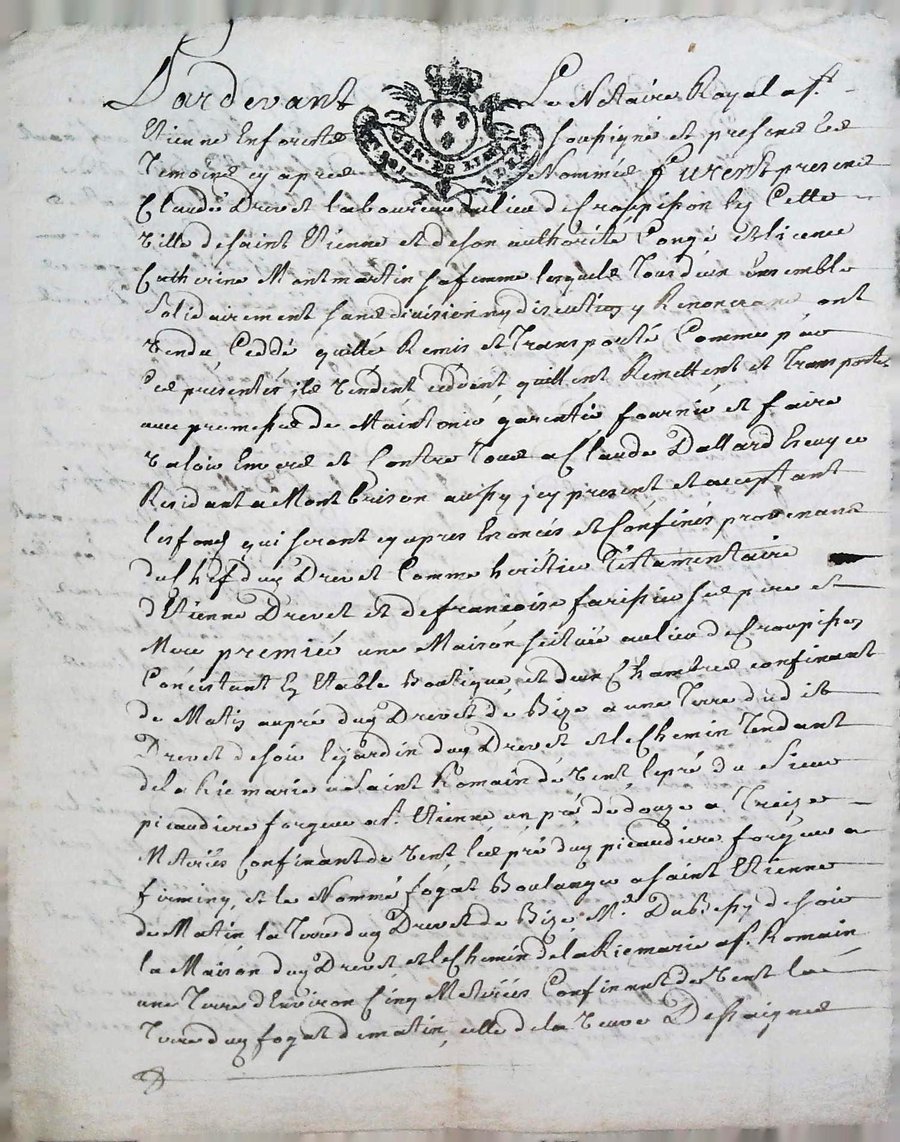 Pardevant Le Notaire Royal a st
Etienne En forests soussigné et presens les
Temoins cy apres Nommés furent presens
GEN. DE LION
Claude Drevet laboureur du lieu de Crappisson En Cette
Ville de saint Etienne et de son authorité Congé et licence
Catherine Montmartin sa femme lesquels Tous deux Ensemble
Solidairement sans division ny discution y Renonceans ont
vendu Ceddé quitté Remis et Transporté Comme par
Ces présentes ils vendent cedent quittent Remettent et Transportes
avec promesses de Maintenir garentir fournir et faire
valoir Envers et Contre Tous a Claude Dallard Ecuyer
Residant a Montbrison aussy icy present et acceptant
les fonds qui seront cy apres Enoncés et Confinés provenans
du Chef dud Drevet Comme heritier Testamentaire
d'Etienne Drevet et de francoise farissier ses pere et
Mere premier une Maison scituée au lieu de Croupisson
Concistant En Etable Boutique et deux Chambres confinant
de Matin au pré dud Drevet de Bize a une Terre dudit
Drevet de soir le jardin dud Drevet et le Chemin Tendant
de la Riemarie a Saint Romain de vent le pré du Sieur
picaudiere forgeur a st Etienne un pré de douze a Treize
Meterées Confinant de vent les pré dud picaudiere forgeur a
firminy et le Nommé fogat Boulanger a saint Etienne
de Matin la Terre dud Drevet de Bize Mr de soir
la Maison dud Drevet et le Chemin de la Riemarie a st Romain
une Terre d'Environ Cinq Meterées Confinant de vent la
Terre dud fogat de matin, celle de la veuve Desaignes